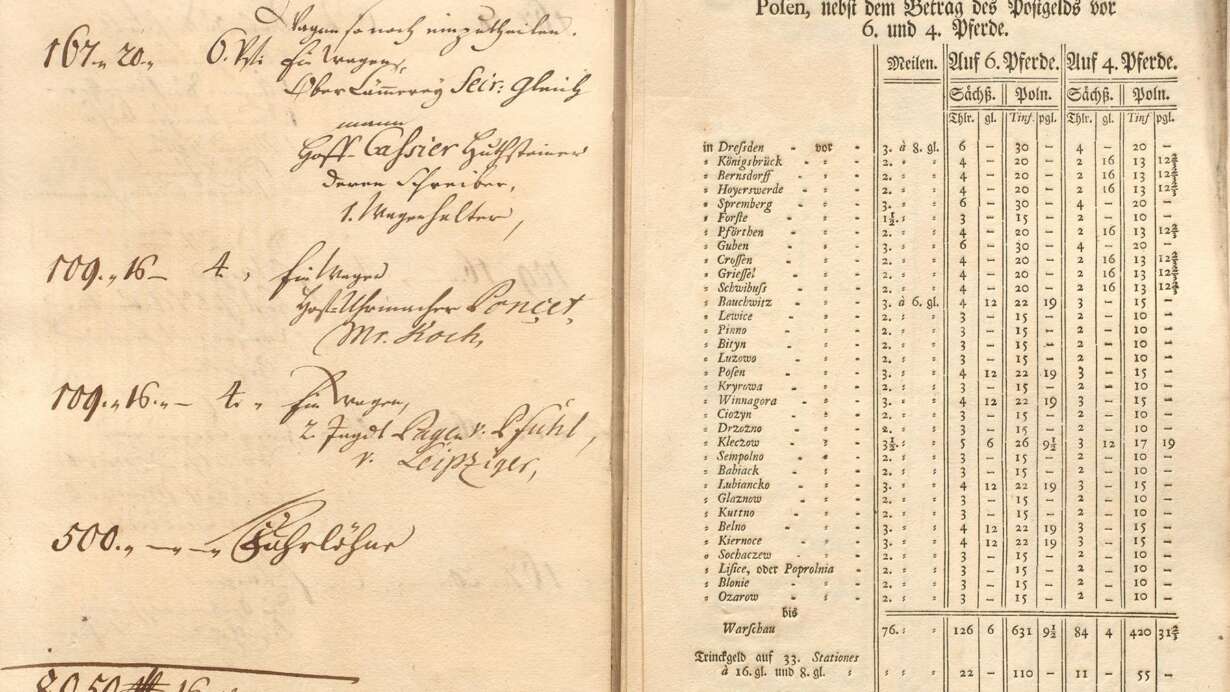 Wagen so noch einzutheilen.
167.„ 20.„ 6. Pf: Ein Wagen,
Ober Cämmerey Secr: Gleich
mann
Hoff-Cassier Huthsteiner
deren Schreiber,
1. Wagenhalter,
109.„ 16– 4. „ Ein Wagen
Hof-Uhrmacher Poncet,
Mr. Koch,
109.„ 16.„– 4. „ Ein Wagen,
2. Jagdt Pagen v. Pfuhl,
v. Leipziger,
500.„ –„–„ Fuhrlöhne
8050
Polen, nebst dem Betrag des Postgelds vor
6. und 4. Pferde.
Meilen. Auf 6. Pferde. Auf 4. Pferde.
Sächß. Poln. Sächß. Poln.
Thlr. gl. Tinf pgl. Thlr. gl. Tinf pgl.
in Dresden - vor - 3. à 8. gl. 6 – 30 – 4 – 20 –
⸗ Königsbrück - ⸗ - 2. ⸗ ⸗ 4 – 20 – 2 16 13 12⅔
⸗ Bernsdorff - ⸗ - 2. ⸗ ⸗ 4 – 20 – 2 16 13 12⅔
⸗ Hoyerswerde - ⸗ - 2. ⸗ ⸗ 4 – 20 – 2 16 13 12⅔
⸗ Spremberg - ⸗ - 3. ⸗ ⸗ 6 – 30 – 4 – 20 –
⸗ Forste - ⸗ - 1½. ⸗ ⸗ 3 – 15 – 2 – 10 –
⸗ Pförthen - ⸗ - 2. ⸗ ⸗ 4 – 20 – 2 16 13 12⅔
⸗ Guben - ⸗ - 3. ⸗ ⸗ 6 – 30 – 4 – 20 –
⸗ Crossen - ⸗ - 2. ⸗ ⸗ 4 – 20 – 2 16 13 12⅔
⸗ Griessel - ⸗ - 2. ⸗ ⸗ 4 – 20 – 2 16 13 12⅔
⸗ Schwibuss - ⸗ - 2. ⸗ ⸗ 4 – 20 – 2 16 13 12⅔
⸗ Bauchwitz - ⸗ - 3. à 6. gl. 4 12 22 19 3 – 15 –
⸗ Lewice - ⸗ - 2. ⸗ ⸗ 3 – 15 – 2 – 10 –
⸗ Pinno - ⸗ - 2. ⸗ ⸗ 3 – 15 – 2 – 10 –
⸗ Bityn - ⸗ - 2. ⸗ ⸗ 3 – 15 – 2 – 10 –
⸗ Luzowo - ⸗ - 2. ⸗ ⸗ 3 – 15 – 2 – 10 –
⸗ Posen - ⸗ - 3. ⸗ ⸗ 4 12 22 19 3 – 15 –
⸗ Kryrowa - ⸗ - 2. ⸗ ⸗ 3 – 15 – 2 – 10 –
⸗ Winnagora - ⸗ - 3. ⸗ ⸗ 4 12 22 19 3 – 15 –
⸗ Ciozyn - ⸗ - 2. ⸗ ⸗ 3 – 15 – 2 – 10 –
⸗ Drzozno - ⸗ - 2. ⸗ ⸗ 3 – 15 – 2 – 10 –
⸗ Kleczow - ⸗ - 3½. ⸗ ⸗ 5 6 26 9½ 3 12 17 19
⸗ Sempolno - ⸗ - 2. ⸗ ⸗ 3 – 15 – 2 – 10 –
⸗ Babiack - ⸗ - 2. ⸗ ⸗ 3 – 15 – 2 – 10 –
⸗ Lubiancko - ⸗ - 3. ⸗ ⸗ 4 12 22 19 3 – 15 –
⸗ Glaznow - ⸗ - 2. ⸗ ⸗ 3 – 15 – 2 – 10 –
⸗ Kuttno - ⸗ - 2. ⸗ ⸗ 3 – 15 – 2 – 10 –
⸗ Belno - ⸗ - 3. ⸗ ⸗ 4 12 22 19 3 – 15 –
⸗ Kiernoce - ⸗ - 3. ⸗ ⸗ 4 12 22 19 3 – 15 –
⸗ Sochaczew - ⸗ - 2. ⸗ ⸗ 3 – 15 – 2 – 10 –
⸗ Lisice, oder Poprolnia ⸗ - 2. ⸗ ⸗ 3 – 15 – 2 – 10 –
⸗ Blonie - ⸗ - 2. ⸗ ⸗ 3 – 15 – 2 – 10 –
⸗ Ozarow - ⸗ - 2. ⸗ ⸗ 3 – 15 – 2 – 10 –
bis
Warschau 76. ⸗ ⸗ 126 6 631 9½ 84 4 420 31⅔
Trinckgeld auf 33. Stationes
à 16. gl. und 8. gl. ⸗ ⸗ ⸗ ⸗ 22 – 110 – 11 – 55 –